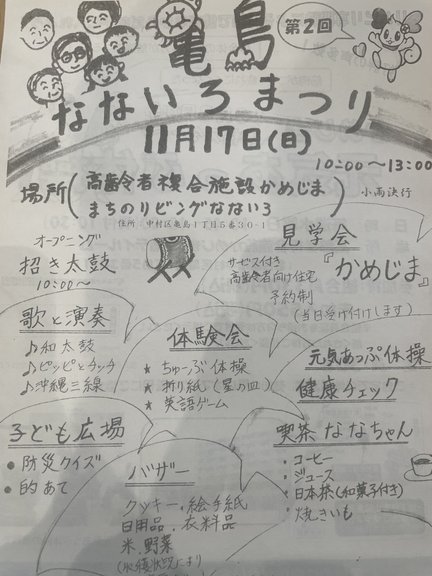 第2回
亀島
なないろまつり
11月17日(日)
10:00~13:00
場所(高齢者複合施設かめじま
まちのリビングなないろ)
小雨決行
住所:中村区亀島1丁目5番30-1
オープニング
招き太鼓
10:00~
見学会
サービス付き
高齢者向け住宅
『かめじま』
予約制
(当日受け付けします)
歌と演奏
♪和太鼓
♪ピッピとチッチ
♪沖縄三線
体験会
★ ちゅーぶ体操
★ 折り紙(星の皿)
★ 英語ゲーム
元気あっぷ体操
健康チェック
子ども広場
・防災クイズ
・的あて
バザー
クッキー・絵手紙
日用品・衣料品
米・野菜
(収穫状況により
喫茶ななちゃん
・コーヒー
・ジュース
・日本茶(和菓子付き)
・焼きいも